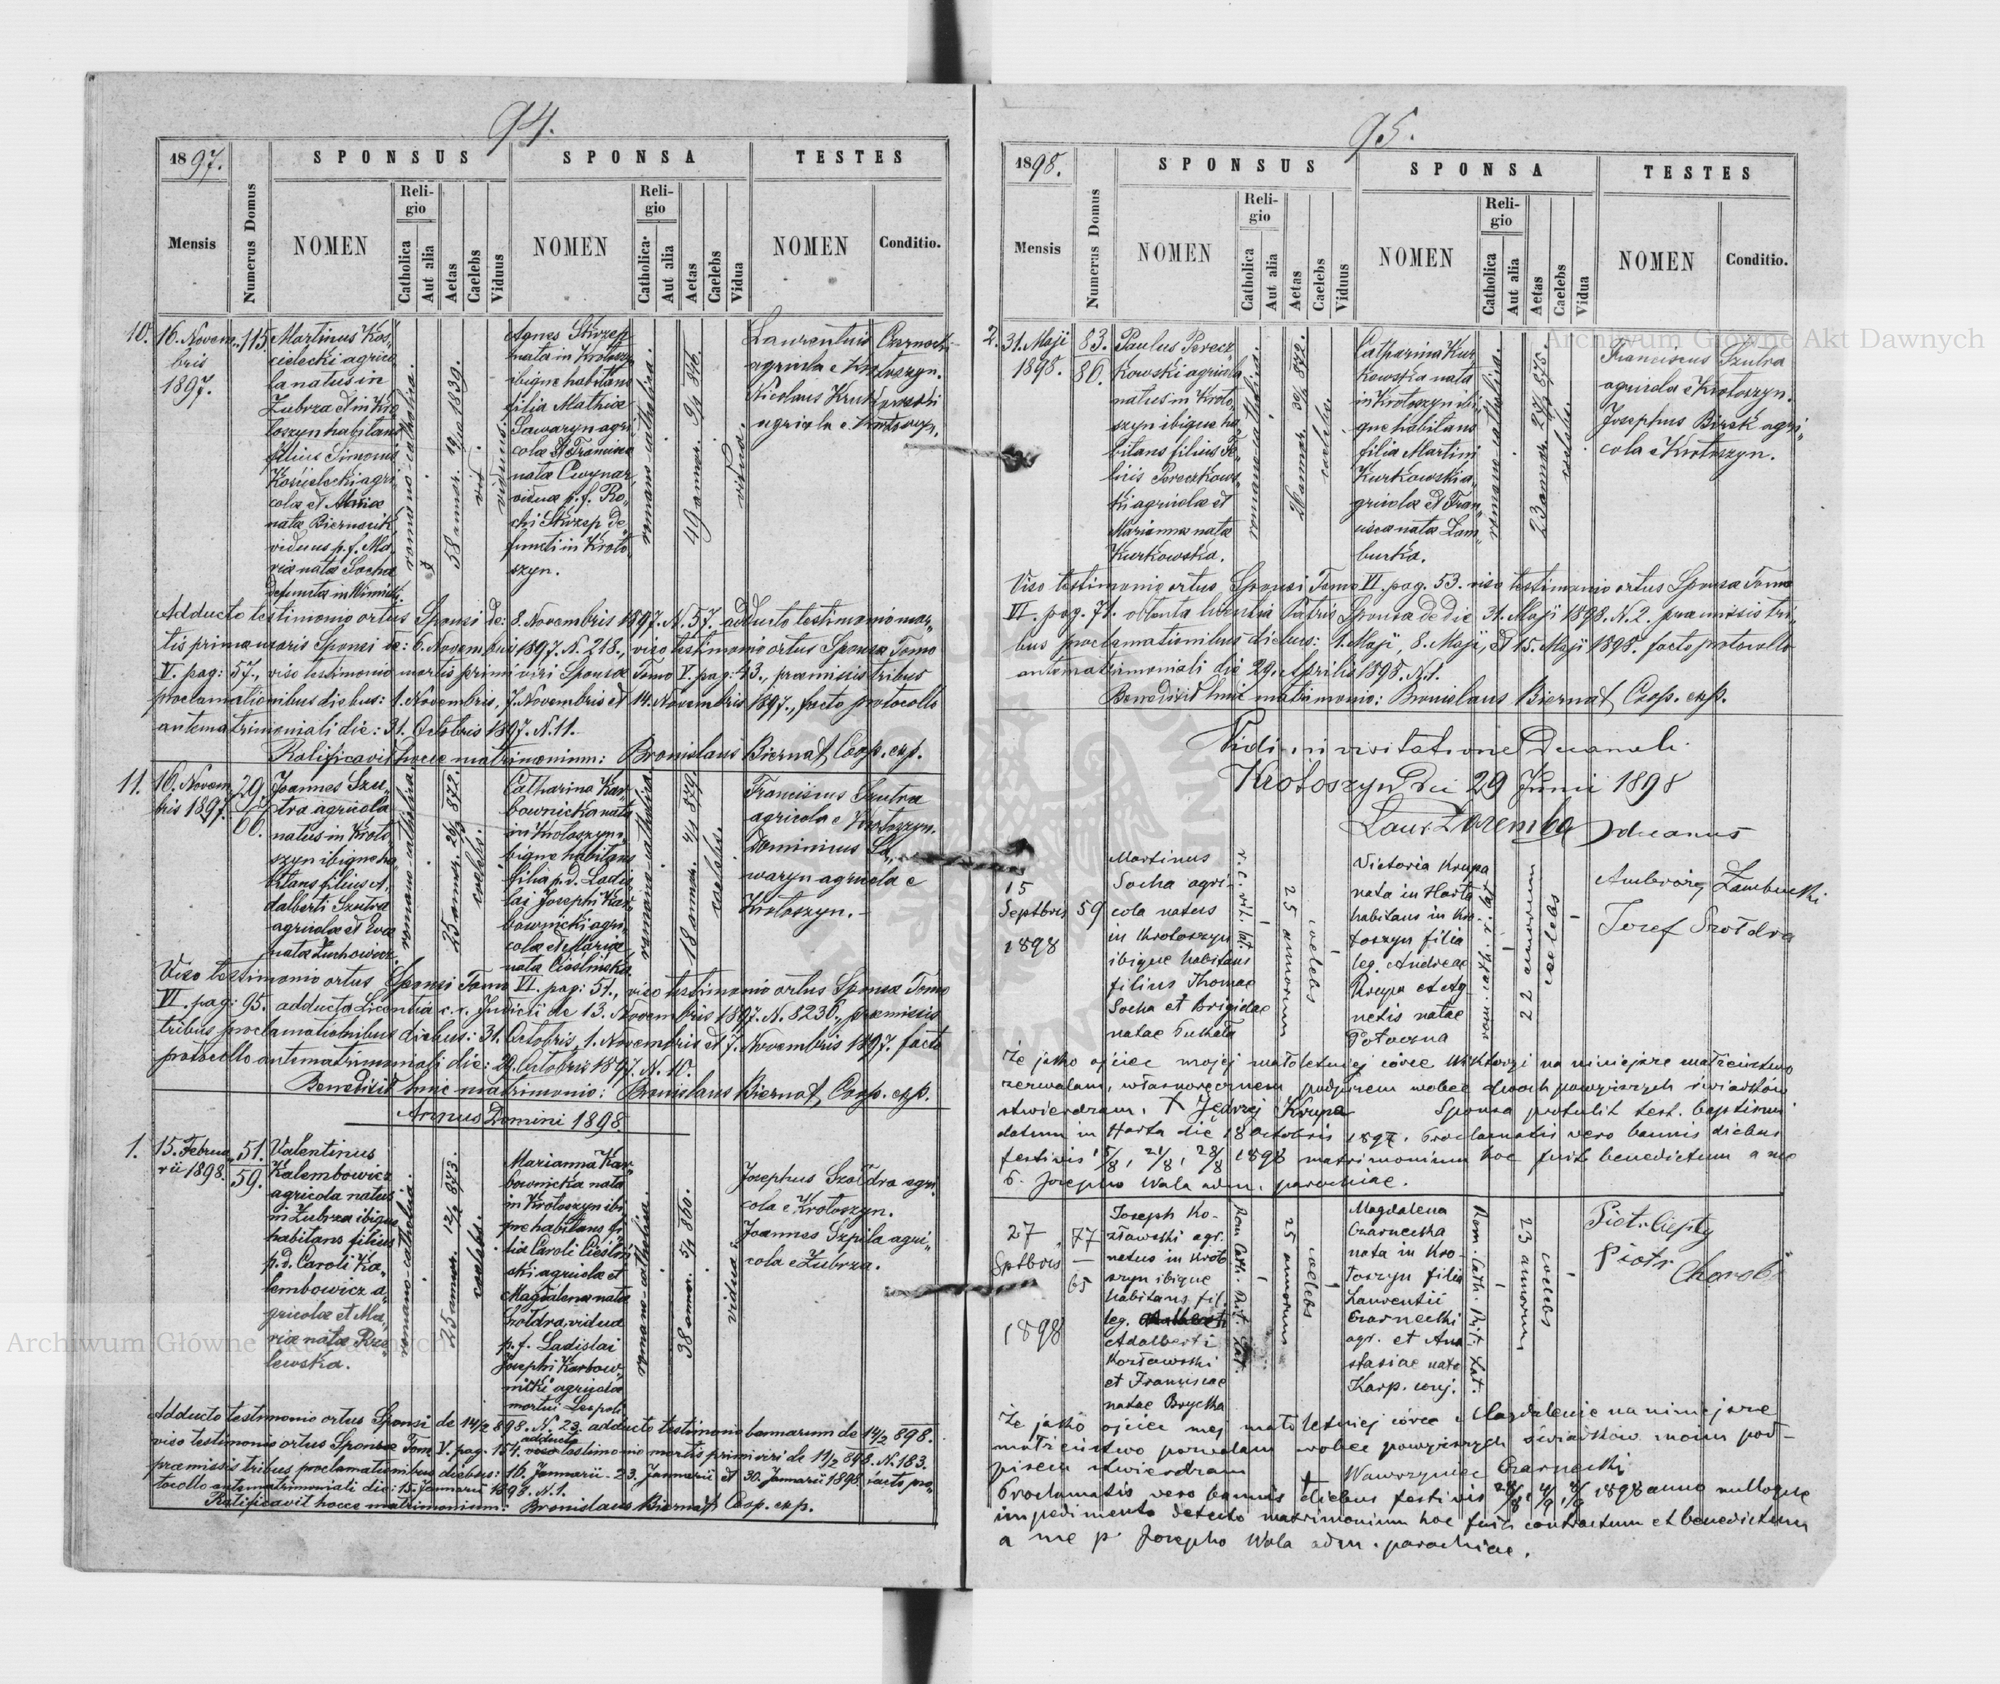 94.
1897.
SPONSUS
SPONSA
TESTES
Mensis
Numerus Domus
NOMEN
Religio
Catholica
Aut alia
Aetas
Caelebs
Viduus
NOMEN
Religio
Catholica
Aut alia
Aetas
Caelebs
Vidua
NOMEN
Conditio.
10.
16. Novem„
bris
1897.
115.
Martinus Koś„
cielecki agrico
la natus in
Zubrza et in Kro
toszyn habitans
filius Simonis
Kościelecki agri
cola et Mariae
nata Biernacik
viduus p. f. Ma
ria nata Socha
defuncta in Winniki.
romano-catholica.
58 annor. 19/10 1839.
viduus.
Agnes Skrzep
nata in Krotoszyn
ibique habitans
filia Mathiae
Sawaryn agri
colae et Francisca
nata Cwynar,
vidua p. f. Ro„
chi Skrzep de„
functi in Kroto
szyn.
romano-catholica.
49 annor. 9/1 846.
vidua.
Laurentius Czarnecki
agricola e Krotoszyn.
Nicolaus
agricola e Krotoszyn.
Adducto testimonio ortus Sponsi de: 8. Novembris 1897. N. 57. adducto testimonio mor„
tis primae uxoris Sponsi de: 6. Novembris 1897. N. 218., viso testimonio ortus Sponsae Tomo
V. pag: 57., viso testimonio mortis primi viri Sponsae Tomo V. pag: 43., praemissis tribus
proclamationibus diebus: 1. Novembris, 7. Novembris et 14. Novembris 1897., facto protocollo
antematrimoniali die: 31. Octobris 1897. N. 11.
Ratificavit hocce matrimonium: Bronislaus Biernat, Coop. exp.
11.
16. Novem
bris 1897.
29.
66.
Joannes Szu„
tra agricola
natus in Kroto
szyn ibique ha„
bitans filius A„
dalberti Szutra
agricolae et Eva
nata Zuchowicz.
romano-catholica
25 annor. 26/5 872.
coelebs.
Catharina Kar
bownicka nata
in Krotoszyn
ibique habitans
filia p. d. Ladis
lai Josephi Kar
bownicki agri
colae et Maria
nata Cieślińska
romano-catholica
18 annor. 4/1 879.
coelebs.
Franciscus Szutra
agricola e Krotoszyn.
Dominicus Sa„
waryn agricola e
Krotoszyn.
Viso testimonio ortus Sponsi Tomo VI. pag: 51., viso testimonio ortus Sponsae Tomo
VI. pag: 95. adducta Licentia c. r. Judicii de 13. Novembris 1897. N. 8236., praemissis
tribus proclamationibus diebus: 31. Octobris, 1. Novembris et 7. Novembris 1897. facto
protocollo antematrimoniali die: 29. Octobris 1897. N. 10.
Benedixit huic matrimonio: Bronislaus Biernat, Coop. exp.
Annus Domini 1898
1.
15. Februa„
rii 1898.
51.
59.
Valentinus
Kalembowicz
agricola natus
in Zubrza ibique
habitans filius
p. d. Caroli Ka„
lembowicz a„
gricolae et Ma„
ria nata Rze„
lewska.
romano-catholica.
25 annor. 12/2 873.
coelebs.
Marianna Kar„
bownicka nata
in Krotoszyn ibi„
que habitans fi„
lia Caroli Cieśliń
ski agricolae et
Magdalena nata
Szołdra, vidua
p. f. Ladislai
Josephi Karbow„
nicki agricola
mortui Leopoli
romano-catholica.
38 annor. 5/1 860.
vidua.
Josephus Szołdra agri„
cola e Krotoszyn.
Joannes Szpila agri„
cola e Zubrza.
Adducto testimonio ortus Sponsi de 14/2 898. N. 23. adducto testimonio bannorum de 14/2 898.
viso testimonio ortus Sponsae Tom. V. pag. 154. adducto testimonio mortis primi viri de 11/2 898. N. 163.
praemissis tribus proclamationibus diebus: 16. Januarii - 23. Januarii et 30. Januarii 1898. facto pro„
tocollo antematrimoniali die: 15. Januarii 1898. N. 1.
Ratificavit hocce matrimonium: Bronislaus Biernat Coop. exp.
95.
1898.
SPONSUS
SPONSA
TESTES
Mensis
Numerus Domus
NOMEN
Religio
Catholica
Aut alia
Aetas
Caelebs
Viduus
NOMEN
Religio
Catholica
Aut alia
Aetas
Caelebs
Vidua
NOMEN
Conditio.
2.
31. Maji
1898.
83.
80.
Paulus Perecz„
kowski agricola
natus in Kroto„
szyn ibique ha„
bitans filius Fe„
licis Pereczkows„
ki agricolae et
Marianna nata
Kurkowska.
romano-catholica.
26 annor. 30/1 872.
coelebs.
Catharina Kur„
kowska nata
in Krotoszyn ibi„
que habitans
filia Martini
Kurkowski a„
gricolae et Fran„
cisca nata Zam„
burka.
romano-catholica.
23 annor. 875.
coelebs.
Franciscus Szutra
agricola e Krotoszyn.
Josephus Birek agri„
cola e Krotoszyn.
Viso testimonio ortus Sponsi Tomo VI. pag. 53. viso testimonio ortus Sponsae Tomo
VI. pag. 71. obtenta licentia Patris Sponsae de die 31. Maji 1898. N. 2. praemissis tri„
bus proclamationibus diebus: 1. Maji, 8. Maji, et 15. Maji 1898. facto protocollo
antematrimoniali die 29. Aprilis 1898. N. 1.
Benedixit huic matrimonio: Bronislaus Biernat, Coop. exp.
Vidi in visitatione Decanali
Krotoszyn Die 29 Junii 1898
Laur. Zaremba decanus
15
Septbris
1898
59
Martinus
Socha agri-
cola natus
in Krotoszyn
ibique habitans
filius Thomae
Socha et Brigidae
natae Sukata
r. c. rit. lat.
25 annorum
coelebs
Victoria Krupa
nata in Harta
habitans in Kro-
toszyn filia
leg. Andreae
Krupa et Ag-
netis natae
Potoczna
22 annorum
coelebs
Ambroży Zamburski
Józef Szołdra
Że jako ojciec mojej małoletniej córce Wiktorji na niniejsze małżeństwo
zezwalam, własnoręcznem podpisem wobec dwóch powyższych świadków
stwierdzam. † Jędrzej Krupa Sponsa protulit test. baptismi
datum in Harta die 18 Octobris 1897. Proclamatis vero bannis diebus
festivis 15/8, 21/8, 28/8 1898 matrimonium hoc fuit benedictum a me
P. Josepho Wala adm. parochiae.
27
Sptbris
1898
77
65
Joseph Ko-
złowski agr.
natus in Kroto
szyn ibique
habitans fil.
leg.
Adalberti
Kozłowski
et Franciscae
natae Brycka
Rom. Cath. Rit. Lat.
25 annorum
coelebs
Magdalena
Czarnecka
nata in Kro-
toszyn filia
Laurentii
Czarnecki
agr. et Ana
stasiae nata
Karp. conj.
Rom. Cath. Rit. Lat.
23 annorum
coelebs
Piotr Ciepły
Piotr Chorob
Że jako ojciec mej małoletniej córce Magdalenie na niniejsze
małżeństwo pozwalam wobec powyższych świadków moim pod-
pisem stwierdzam Wawrzyniec Czarnecki
Proclamatis vero bannis diebus festivis 28/8, 4/9, 8/9 1898 anno nulloque
impedimento detecto matrimonium hoc fuit contractum et benedictum
a me p. Josepho Wala adm. parochiae.
Archiwum Główne Akt Dawnych
Archiwum Główne Akt Dawnych